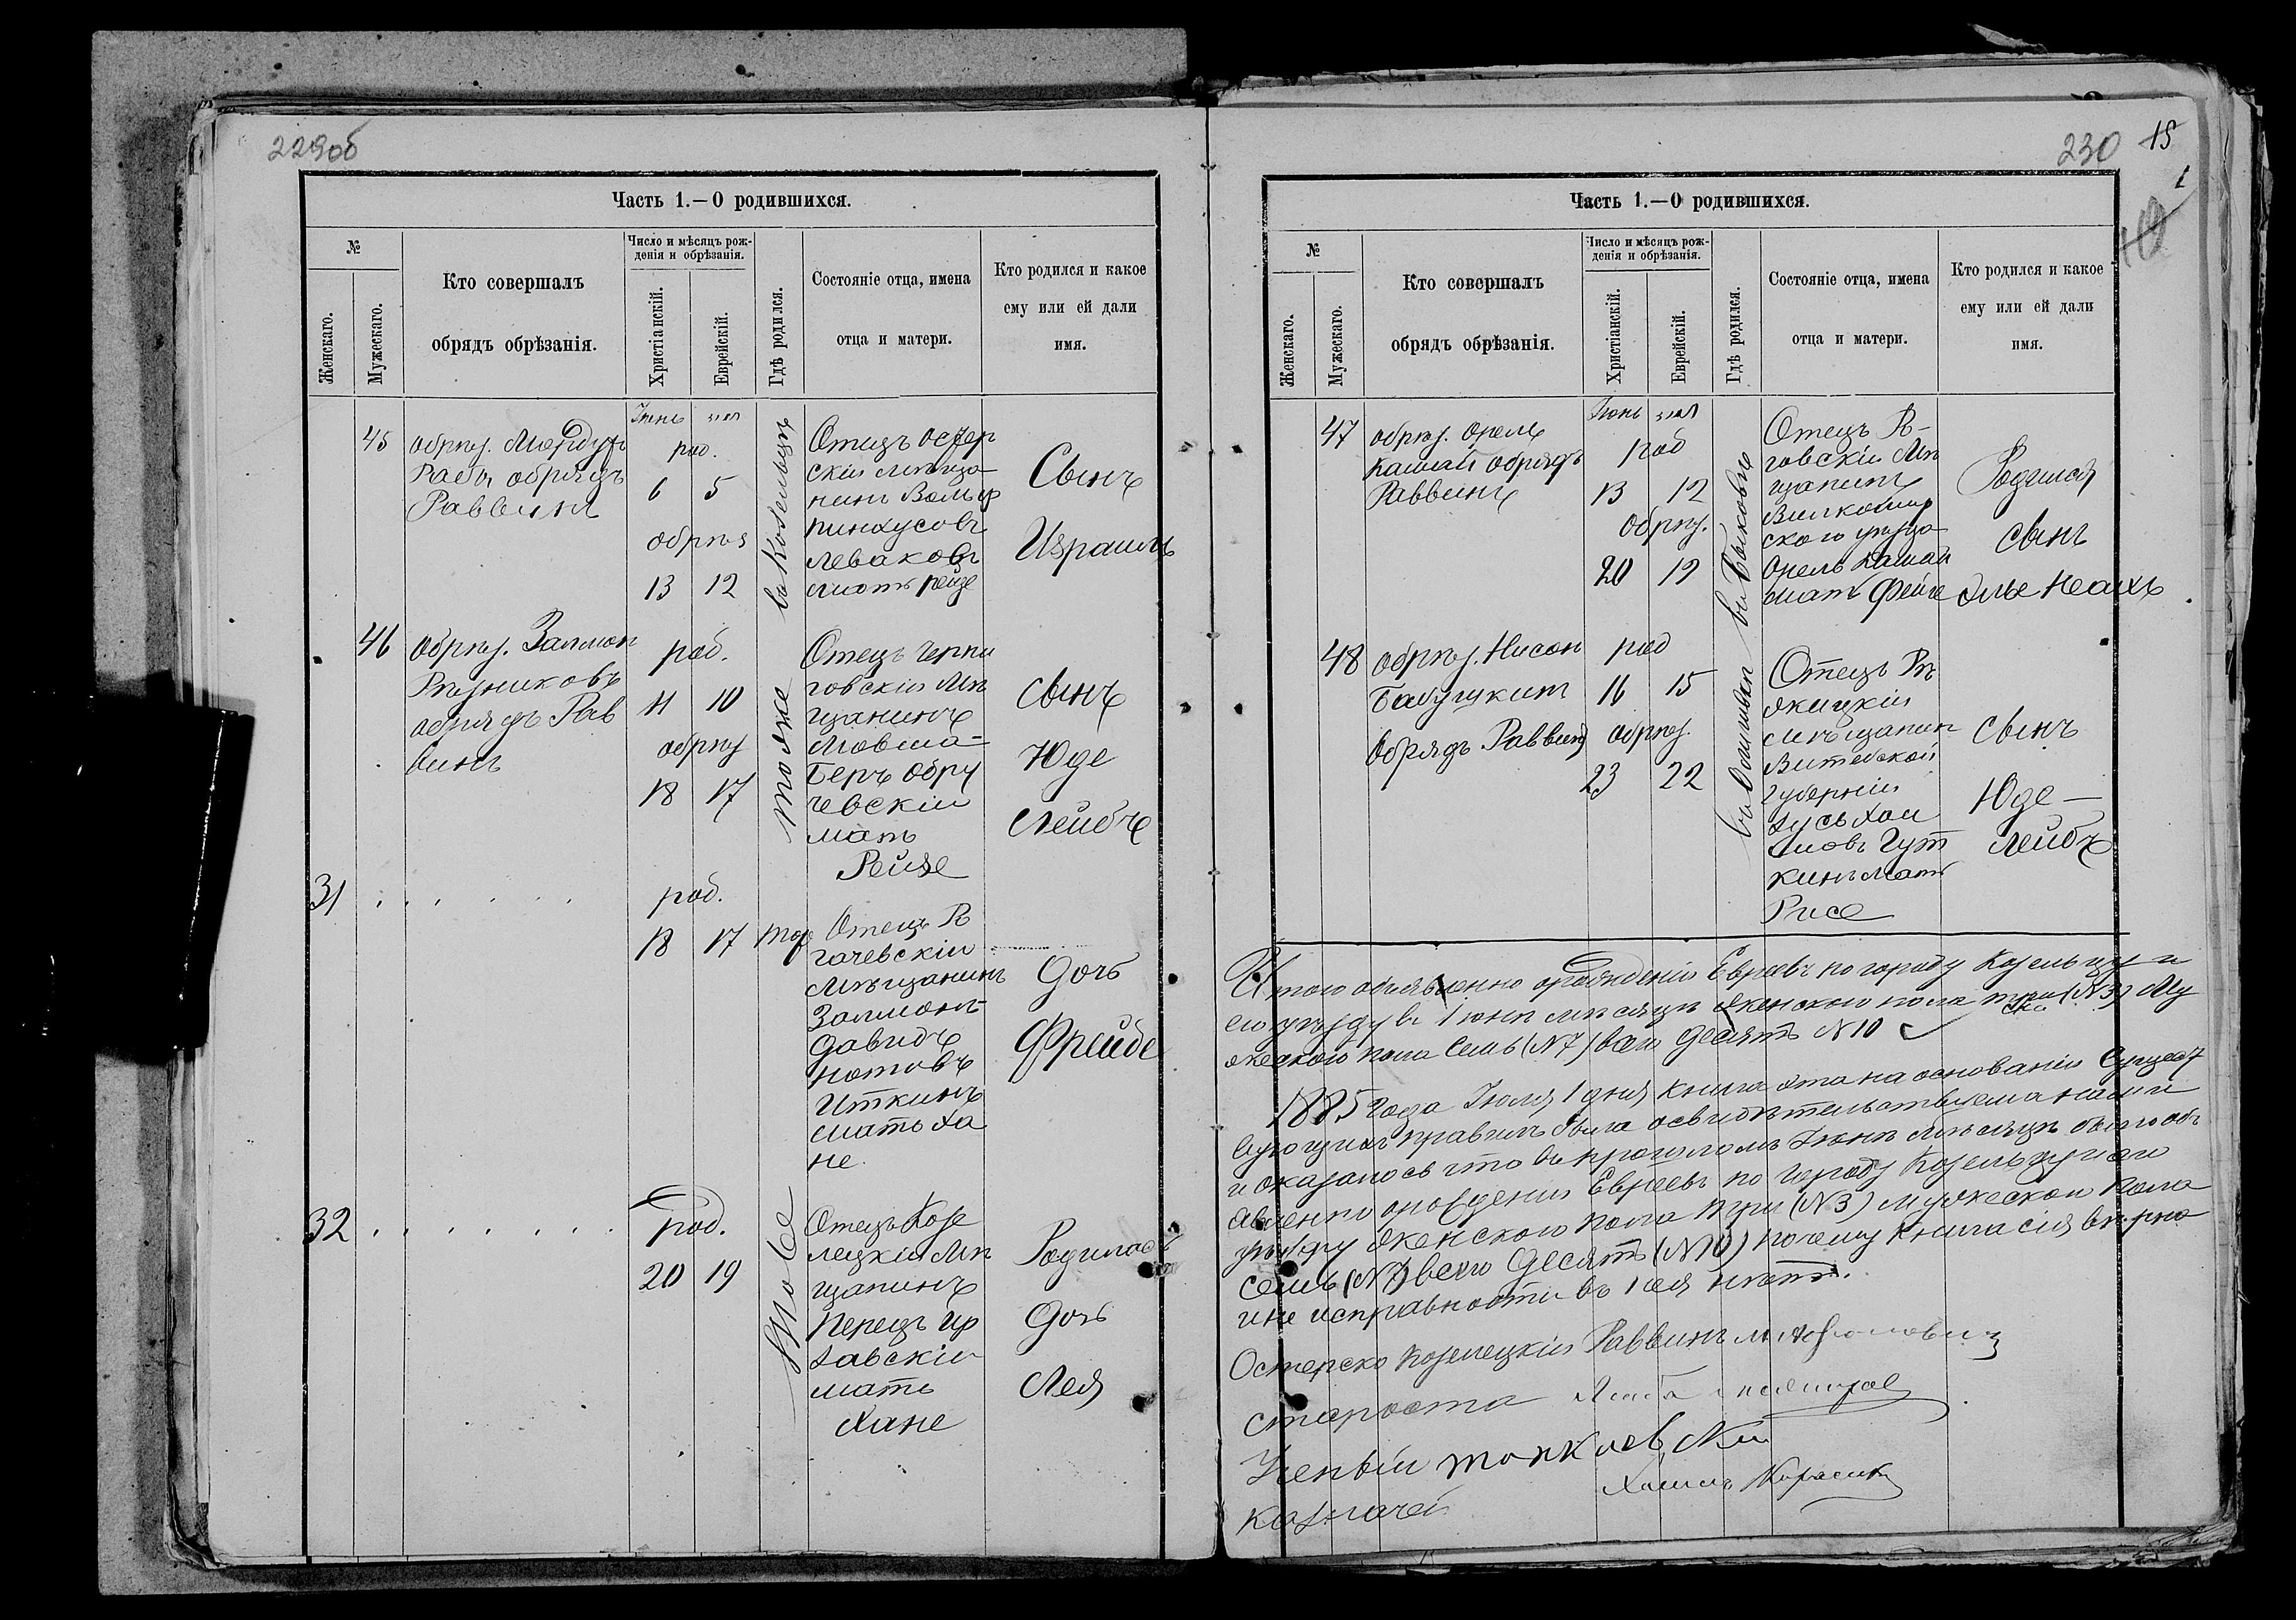 229об
Часть 1.—О родившихся.
№
Женскаго.
Мужескаго.
Кто совершалъ
обрядъ обрѣзанія.
Число и мѣсяцъ рож-
денія и обрѣзанія.
Христіанскій.
Еврейскій.
Гдѣ родился.
Состояніе отца, имена
отца и матери.
Кто родился и какое
ему или ей дали
имя.
45
обрѣз. Мордухъ
обрядъ
Раввинъ
Іюнь
род.
6 5
обрѣз
13 12
въ Козельцѣ
Отецъ остер
скій мѣща-
нинъ Вольф
Пинхусовъ
Леваковъ
мать Рейзе
Сынъ
Израиль
46
обрѣз. Залмон
Рѣзниковъ
обрядъ Рав
винъ
род.
11 10
обрѣз
18 17
тоже
Отецъ черни
говскій мѣ
щанинъ
Мовша-
Беръ Обру
чевскій
мать
Рейзе
сынъ
Юде
Лейбъ
31
род.
18 17
тоже
Отецъ Ро
гачевскій
мѣщанинъ
Залмонъ
Давидъ
Нотовъ
Иткинъ
мать Ха
не.
Дочь
Фрейде
32
род.
20 19
тоже
Отецъ Козе
лецкій мѣ
щанинъ
Перецъ
мать
Хане
Родилась
Дочь
Лея
230 15
Часть 1.—О родившихся.
№
Женскаго.
Мужескаго.
Кто совершалъ
обрядъ обрѣзанія.
Число и мѣсяцъ рож-
денія и обрѣзанія.
Христіанскій.
Еврейскій.
Гдѣ родился.
Состояніе отца, имена
отца и матери.
Кто родился и какое
ему или ей дали
имя.
47
обрѣз. Орель
Кашай обрядъ
Раввинъ
Іюнь
род
13 12
обрѣз.
20 19
въ Быковъ
Отецъ
говскій мѣ
щанинъ
Вилкомир
скаго уѣзда
Орель Кашай
мать Фейге
Родился
сынъ
Элье Неахъ
48
обрѣз. Нисон
Бабушкинъ
Обрядъ Раввинъ
род
16 15
обрѣз.
23 22
Отецъ Рѣ
жицкій
мѣщанин
Витебской
губерніи
Зусь Хаи
мовъ Гут
кинъ мать
Рисе
сынъ
Юде—
Лейбъ
Итого объявленно о рожденіи Евреевъ по городу Козельцу и
его уѣзду въ Іюнѣ мѣсяцѣ женскаго пола три (№3) Му
жескаго пола семь (№7) всего десять №10
1885 года Іюля 1 дня книга эта на основаніи Сущест
вующихъ правилъ была освидѣтельствована нами
и оказалось что въ прошломъ Іюнѣ мѣсяцѣ было объ
явленно о рожденіи Евреевъ по городу Козельцу и его
уѣзду женскаго пола три (№3) мужескаго пола
семь (№7) всего десять (№10) почему книга сія вѣрна
и не исправности въ ней нѣтъ.
Остерско Козелецкій Раввинъ
староста
Ученый
Казначей